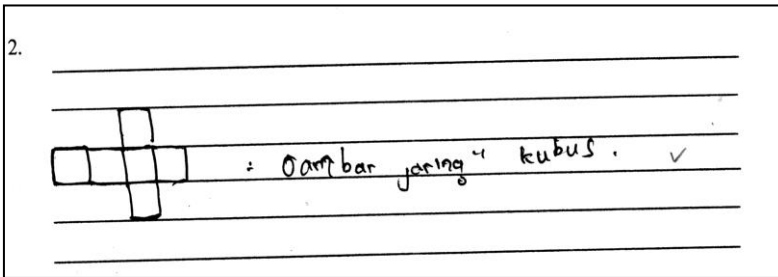 2.
: Gambar jaring" kubus. ✓